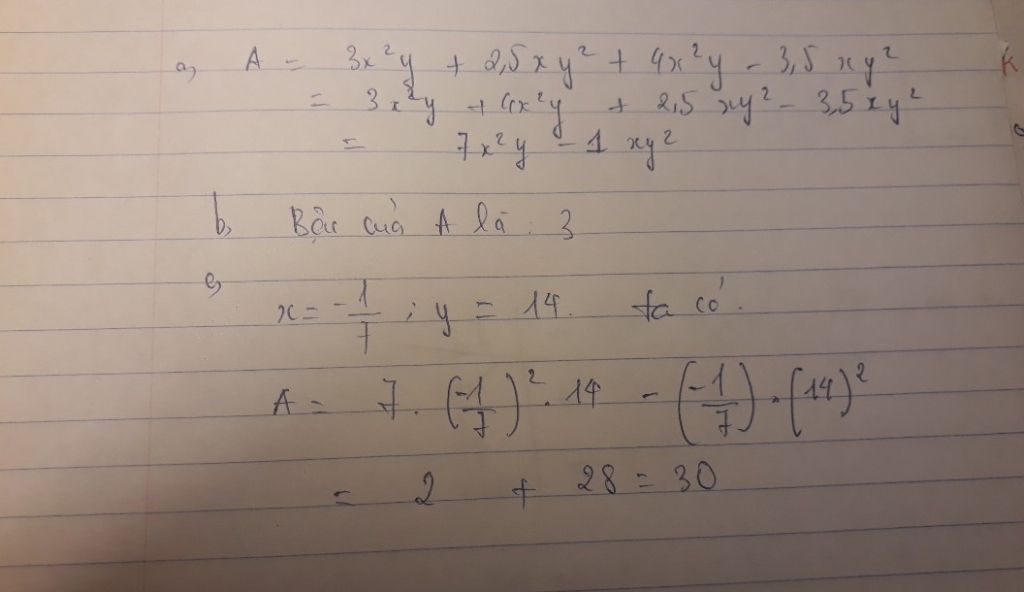 a, A = 3x²y + 2,5xy² + 4x²y - 3,5xy²
= 3x²y + 4x²y + 2,5xy² - 3,5xy²
= 7x²y - 1xy²
b, Bậc của A là: 3
c,
x = -1/7 ; y = 14. ta có.
A = 7 . (-1/7)² . 14 - (-1/7) . (14)²
= 2 + 28 = 30